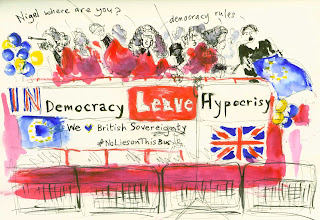 Nigel where are you?
democracy rules
IN Democracy Leave Hypocrisy
We British Sovereignty
#NoLiesonThisBus